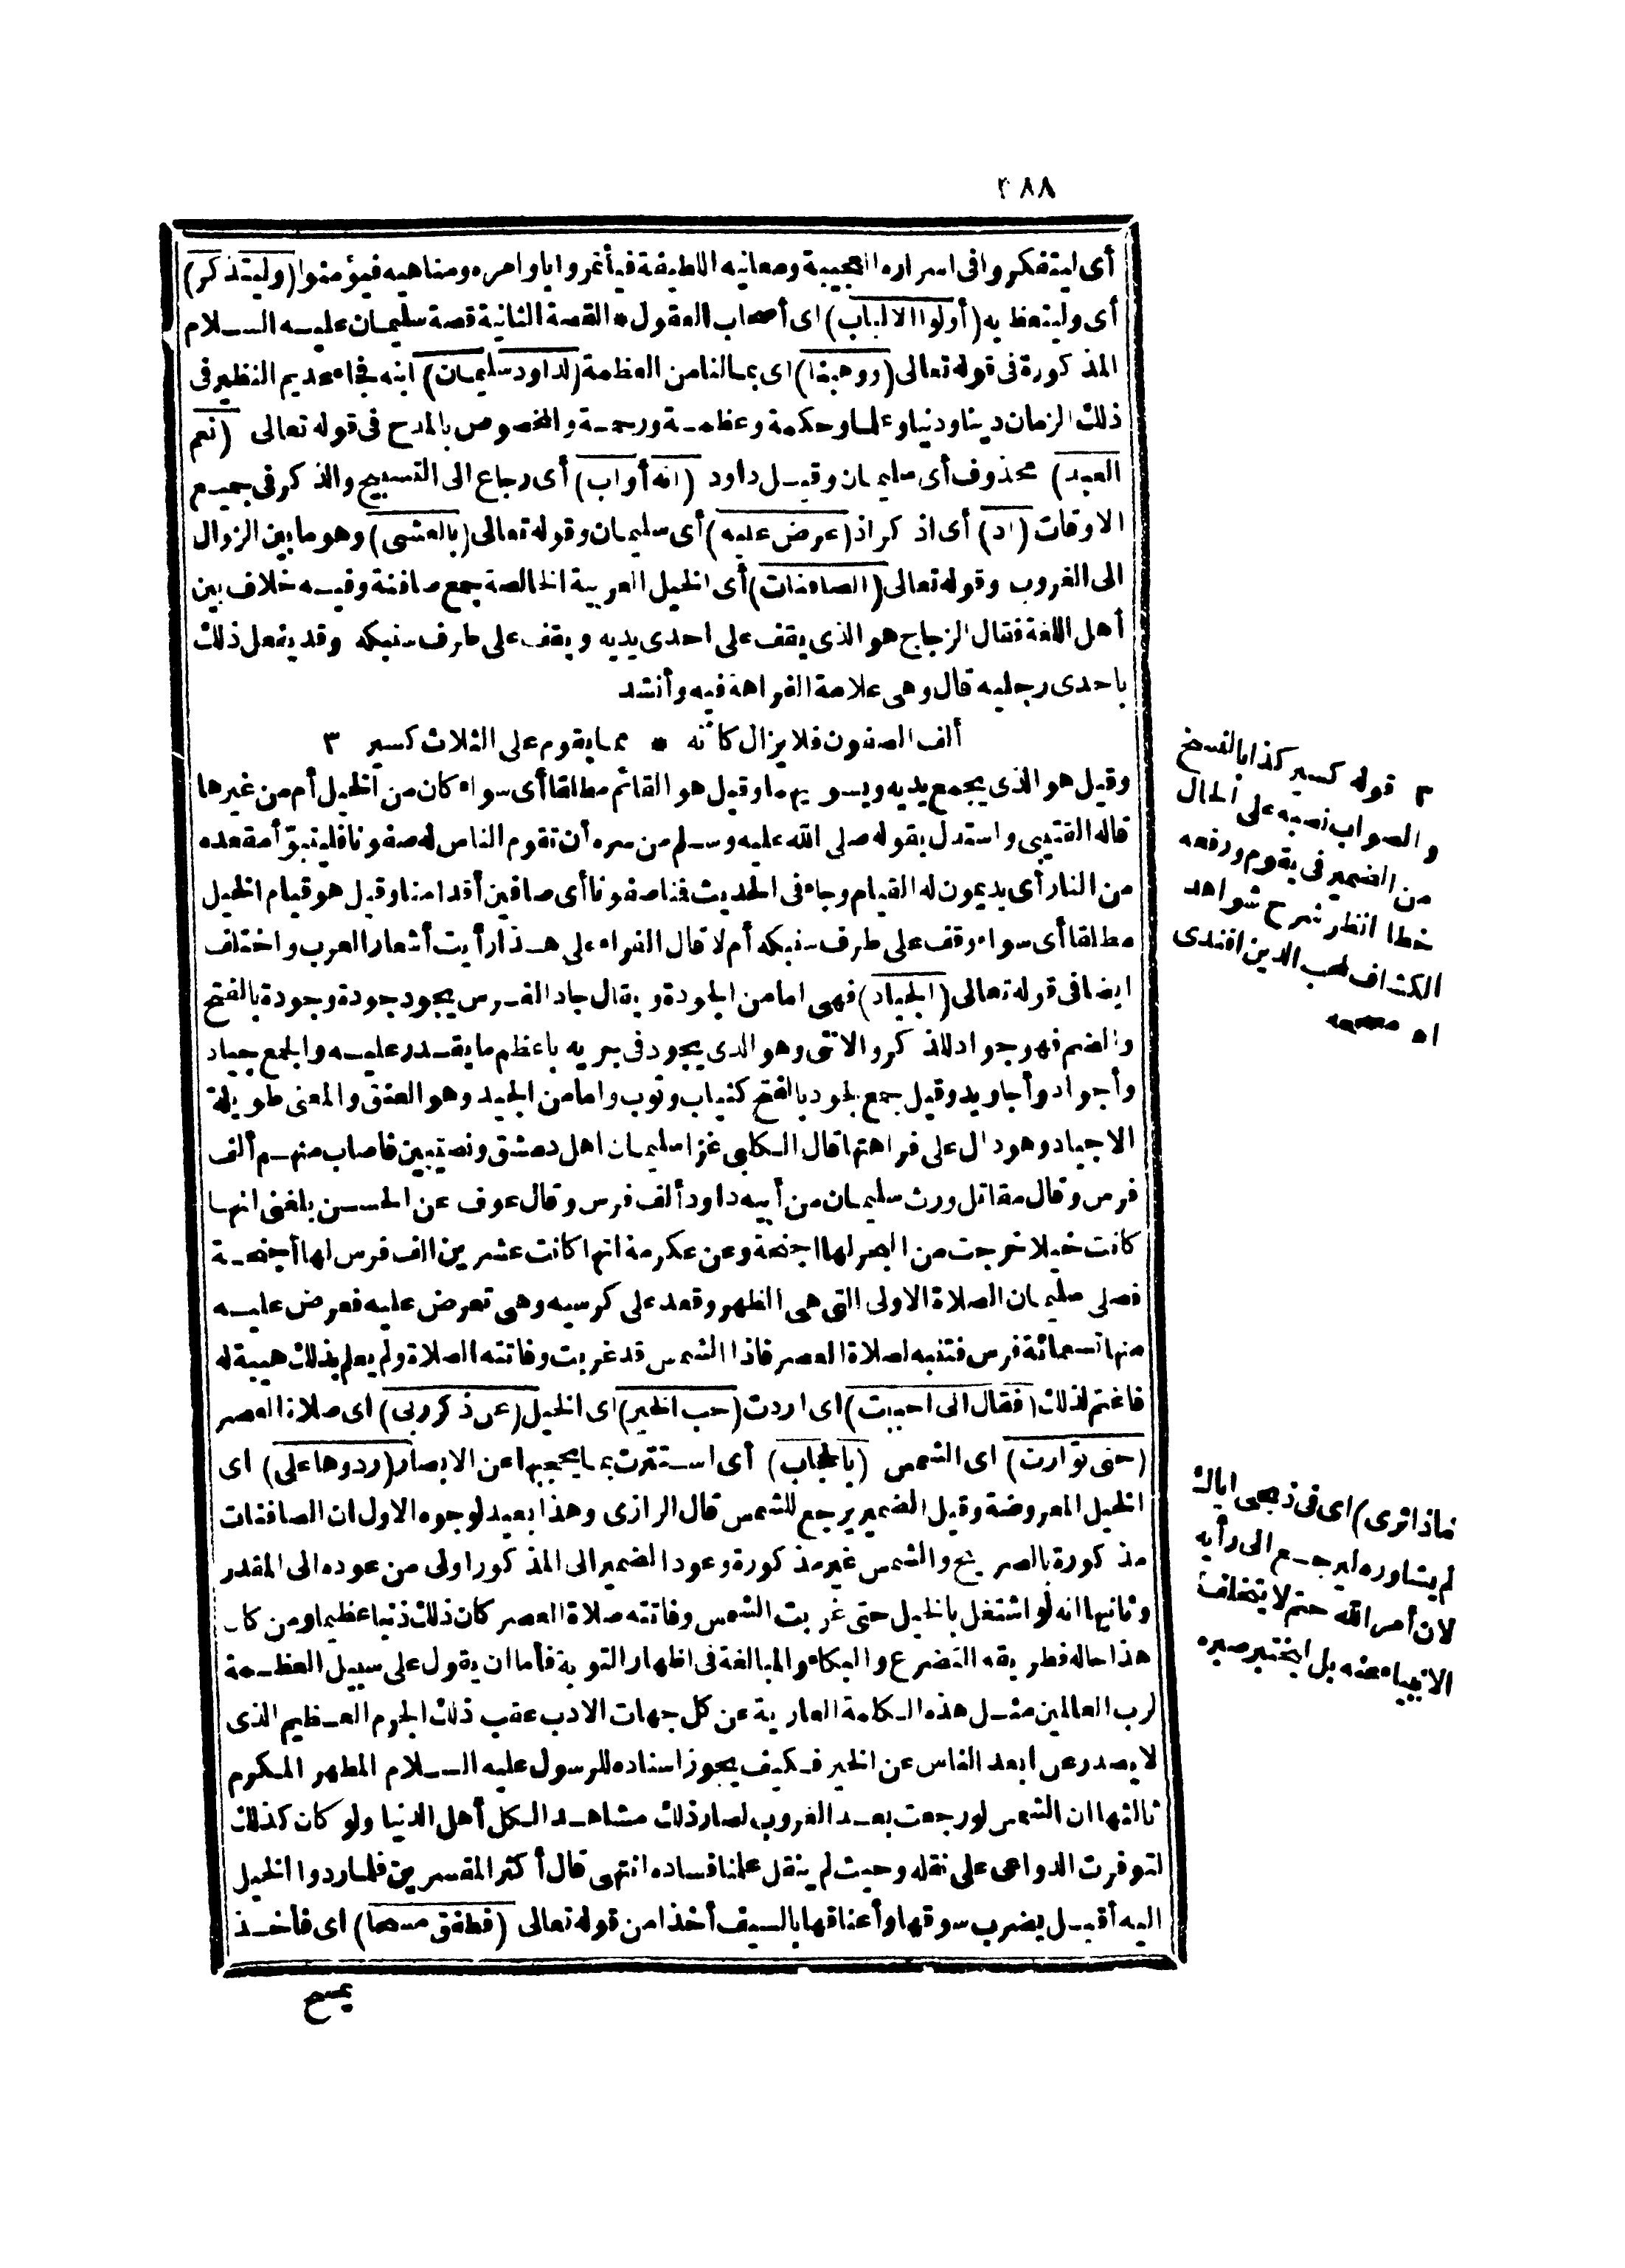 ٣٨٨
أى ليتفكروا فى اسراره العجيبة ومعانيه اللطيفة فيأتمروا باوامره ومناهيه فيؤمنوا (وليتذكر)
أى وليتعظ به (أولوا الالباب) اى أصحاب العقول * القصة الثانية قصة سليمان عليه السلام
المذكورة فى قوله تعالى (ووهبنا) اى بما لنا من العظمة (لداود سليمان) ابنه فجاء عديم النظير فى
ذلك الزمان دينا ودنيا وعلما وحكمة وعظمة ورحمة والمخصوص بالمدح فى قوله تعالى (نعم
العبد) محذوف أى سليمان وقيل داود (انه أواب) أى رجاع الى التسبيح والذكر فى جميع
الاوقات (اذ) أى اذكر اذ (عرض عليه) أى سليمان وقوله تعالى (بالعشى) وهو ما بين الزوال
الى الغروب وقوله تعالى (الصافنات) أى الخيل العربية الخالصة جمع صافنة وفيه خلاف بين
أهل اللغة فقال الزجاج هو الذى يقف على احدى يديه ويقف على طرف سنبكه وقد يفعل ذلك
باحدى رجليه قال وهى علامة الفراهة فيه وأنشد
ألف الصفون فلا يزال كأنه * مما يقوم على الثلاث كسير ٣
وقيل هو الذى يجمع يديه ويسويهما وقيل هو القائم مطلقا أى سواء كان من الخيل أم من غيرها
قاله القتيبى واستدل بقوله صلى الله عليه وسلم من سره أن تقوم الناس له صفونا فليتبوّأ مقعده
من النار أى يديمون له القيام وجاء فى الحديث قنا صفونا أى صافين أقدامنا وقيل هو قيام الخيل
مطلقا أى سواء وقف على طرف سنبكه أم لا قال الفراء على هذا رأيت أشعار العرب واختلف
ايضا فى قوله تعالى (الجياد) فهى امامن الجودة ويقال جاد الفرس يجود جودة وجودة بالفتح
والضم فهو جواد للذكر والانثى وهو الذى يجود فى جريه باعظم ما يقدر عليه والجمع جياد
وأجواد وأجاويد وقيل جمع لجود بالفتح كثياب وثوب وامامن الجيد وهو العنق والمعنى طويلة
الاجياد وهو دال على فراهتها قال الكلبى غزا سليمان اهل دمشق ونصيبين فاصاب منهم ألف
فرس وقال مقاتل ورث سليمان من أبيه داود ألف فرس وقال عوف عن الحسن بلغنى انها
كانت خيلا خرجت من البحر لها اجنحة وعن عكرمة انها كانت عشرين الف فرس لها أجنحة
فصلى سليمان الصلاة الاولى التى هى الظهر وقعد على كرسيه وهى تعرض عليه فعرض عليه
منها تسعمائة فرس فتنبه لصلاة العصر فاذا الشمس قد غربت وفاتته الصلاة ولم يعلم بذلك هيبة له
فاغتم لذلك (فقال انى احببت) اى اردت (حب الخير) اى الخيل (عن ذكر ربى) اى صلاة العصر
(حتى توارت) اى الشمس (بالحجاب) أى استترت بما يحجبها عن الابصار (ردوها على) اى
الخيل المعروضة وقيل الضمير يرجع للشمس قال الرازى وهذا بعيد لوجوه الاول ان الصافنات
مذكورة بالصريح والشمس غير مذكورة وعود الضمير الى المذكور اولى من عوده الى المقدر
وثانيها انه لو اشتغل بالخيل حتى غربت الشمس وفاتته صلاة العصر كان ذلك ذنبا عظيما ومن كان
هذا حاله فطريقه التضرع والبكاء والمبالغة فى اظهار التوبة فأما ان يقول على سبيل العظمة
لرب العالمين مثل هذه الكلمة العارية عن كل جهات الادب عقب ذلك الجرم العظيم الذى
لا يصدر عن ابعد الناس عن الخير فكيف يجوز اسناده للرسول عليه السلام المطهر المكرم
ثالثها ان الشمس لو رجعت بعد الغروب لصار ذلك مشاهدا لكل أهل الدنيا ولو كان كذلك
لتوفرت الدواعى على نقله وحيث لم ينقل علمنا فساده انتهى قال أكثر المفسرين فلما ردوا الخيل
اليه أقبل يضرب سوقها وأعناقها بالسيف أخذا من قوله تعالى (فطفق مسحا) اى فأخذ
يمسح
٣ قوله كسير كذا بالنسخ
والصواب نصبه على الحال
من الضمير فى يقوم ورفعه
خطا انظر شرح شواهد
الكشاف لمحب الدين افندى
اه مصححه
ماذا ترى) اى فى ذبحى اياك
لم يشاوره ليرجع الى رأيه
لان أمر الله حتم لا يتخلف
الانبياء عنه بل ليختبر صبره